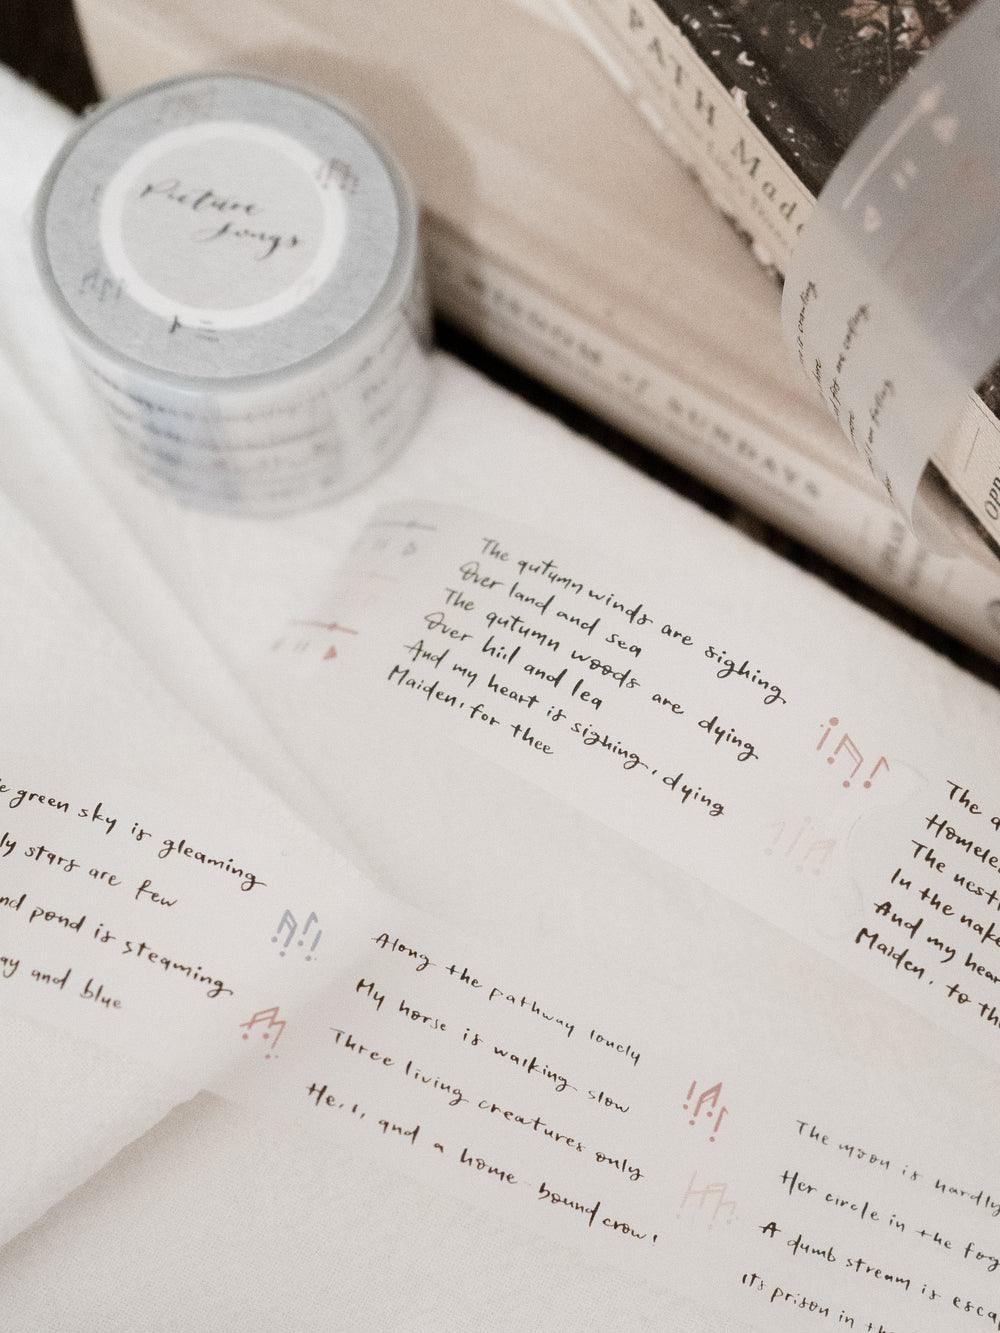 Picture
Songs
PATH Made
WISDOM of SUNDAYS
The autumn winds are sighing
Over land and sea
The autumn woods are dying
Over hill and lea
And my heart is sighing, dying
Maiden, for thee
The
Homele
The nest
In the nake
And my hear
Maiden, to th
green sky is gleaming
ly stars are few
nd pond is steaming
ay and blue
Along the pathway lonely
My horse is walking slow
Three living creatures only
He, I, and a home bound crow!
The moon is hardly
Her circle in the fog
A dumb stream is escap
Its prison in th